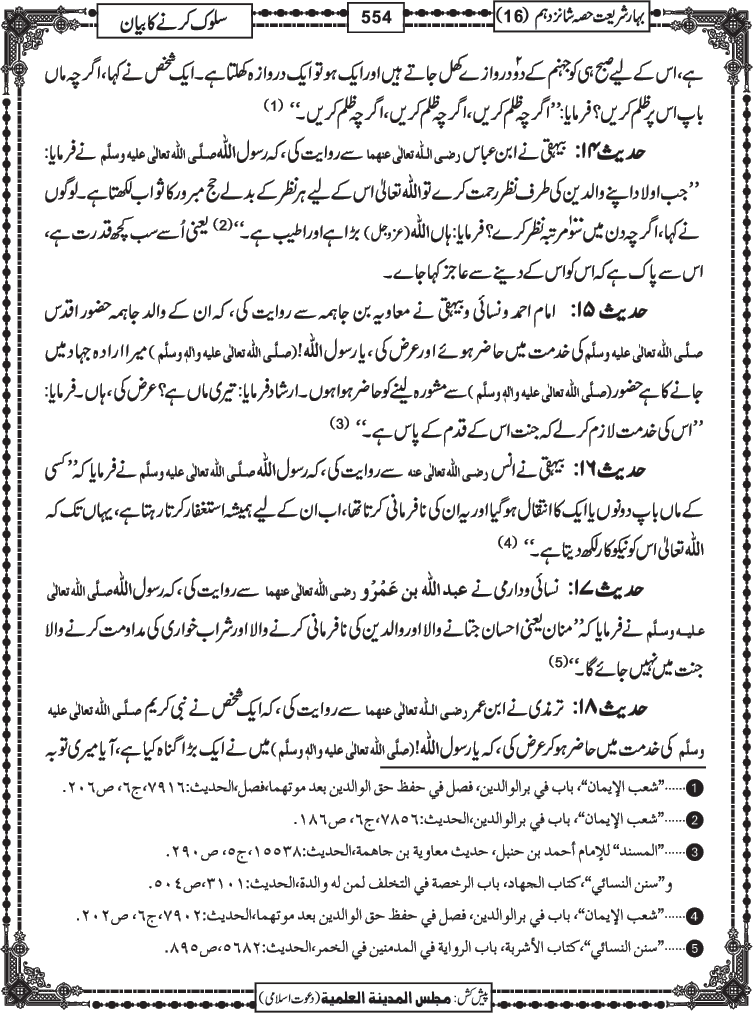 بہارِ شریعت حصہ شانزدہم (16)
554
سلوک کرنے کا بیان
ہے، اس کے لیے صبح ہی کو جہنم کے دو۲ دروازے کھل جاتے ہیں اور ایک ہو تو ایک دروازہ کھلتا ہے۔ ایک شخص نے کہا، اگرچہ ماں
باپ اس پر ظلم کریں؟ فرمایا: ’’اگرچہ ظلم کریں، اگرچہ ظلم کریں، اگرچہ ظلم کریں۔‘‘ (1)
حدیث ۱۴: بیہقی نے ابن عباس رضی اللہ تعالٰی عنھما سے روایت کی، کہ رسول اللہ صلَّی اللہ تعالٰی علیہ وسلَّم نے فرمایا:
’’جب اولاد اپنے والدین کی طرف نظر رحمت کرے تو اللہ تعالیٰ اس کے لیے ہر نظر کے بدلے حج مبرور کا ثواب لکھتا ہے۔ لوگوں
نے کہا، اگرچہ دن میں سو۱۰۰ مرتبہ نظر کرے؟ فرمایا: ہاں اللہ (عزوجل) بڑا ہے اور اطیب ہے۔‘‘ (2) یعنی اُسے سب کچھ قدرت ہے،
اس سے پاک ہے کہ اس کو اس کے دینے سے عاجز کہا جائے۔
حدیث ۱۵: امام احمد و نسائی و بیہقی نے معاویہ بن جاہمہ سے روایت کی، کہ ان کے والد جاہمہ حضور اقدس
صلَّی اللہ تعالٰی علیہ وسلَّم کی خدمت میں حاضر ہوئے اور عرض کی، یارسول اللہ! (صلَّی اللہ تعالٰی علیہ واٰلہٖ وسلَّم) میرا ارادہ جہاد میں
جانے کا ہے حضور (صلَّی اللہ تعالٰی علیہ واٰلہٖ وسلَّم) سے مشورہ لینے کو حاضر ہوا ہوں۔ ارشاد فرمایا: تیری ماں ہے؟ عرض کی، ہاں۔ فرمایا:
’’اس کی خدمت لازم کرلے کہ جنت اس کے قدم کے پاس ہے۔‘‘ (3)
حدیث ۱۶: بیہقی نے انس رضی اللہ تعالٰی عنہ سے روایت کی، کہ رسول اللہ صلَّی اللہ تعالٰی علیہ وسلَّم نے فرمایا کہ ’’کسی
کے ماں باپ دونوں یا ایک کا انتقال ہوگیا اور یہ ان کی نافرمانی کرتا تھا، اب ان کے لیے ہمیشہ استغفار کرتا رہتا ہے، یہاں تک کہ
اللہ تعالیٰ اس کو نیکوکار لکھ دیتا ہے۔‘‘ (4)
حدیث ۱۷: نسائی و دارمی نے عبد اللہ بن عَمْرْو رضی اللہ تعالٰی عنھما سے روایت کی، کہ رسول اللہ صلَّی اللہ تعالٰی
علیہ وسلَّم نے فرمایا کہ ’’منان یعنی احسان جتانے والا اور والدین کی نافرمانی کرنے والا اور شراب خواری کی مداومت کرنے والا
جنت میں نہیں جائے گا۔‘‘ (5)
حدیث ۱۸: ترمذی نے ابن عمر رضی اللہ تعالٰی عنھما سے روایت کی، کہ ایک شخص نے نبی کریم صلَّی اللہ تعالٰی علیہ
وسلَّم کی خدمت میں حاضر ہو کر عرض کی، کہ یارسول اللہ! (صلَّی اللہ تعالٰی علیہ واٰلہٖ وسلَّم) میں نے ایک بڑا گناہ کیا ہے، آیا میری توبہ
1 ......”شعب الإيمان“، باب في بر الوالدين، فصل في حفظ حق الوالدين بعد موتهما، فصل، الحديث: ٧٩١٦، ج٦، ص٢٠٦.
2 ......”شعب الإيمان“، باب في بر الوالدين، الحديث: ٧٨٥٦، ج٦، ص١٨٦.
3 ......”المسند“ للإمام أحمد بن حنبل، حديث معاوية بن جاهمة، الحديث: ١٥٥٣٨، ج٥، ص٢٩٠.
و”سنن النسائي“، كتاب الجهاد، باب الرخصة في التخلف لمن له والدة، الحديث: ٣١٠١، ص٥٠٤.
4 ......”شعب الإيمان“، باب في بر الوالدين، فصل في حفظ حق الوالدين بعد موتهما، الحديث: ٧٩٠٢، ج٦، ص٢٠٢.
5 ......”سنن النسائي“، كتاب الأشربة، باب الرواية في المدمنين في الخمر، الحديث: ٥٦٨٢، ص٨٩٥.
پیش کش: مجلس المدینۃ العلمیۃ (دعوت اسلامی)